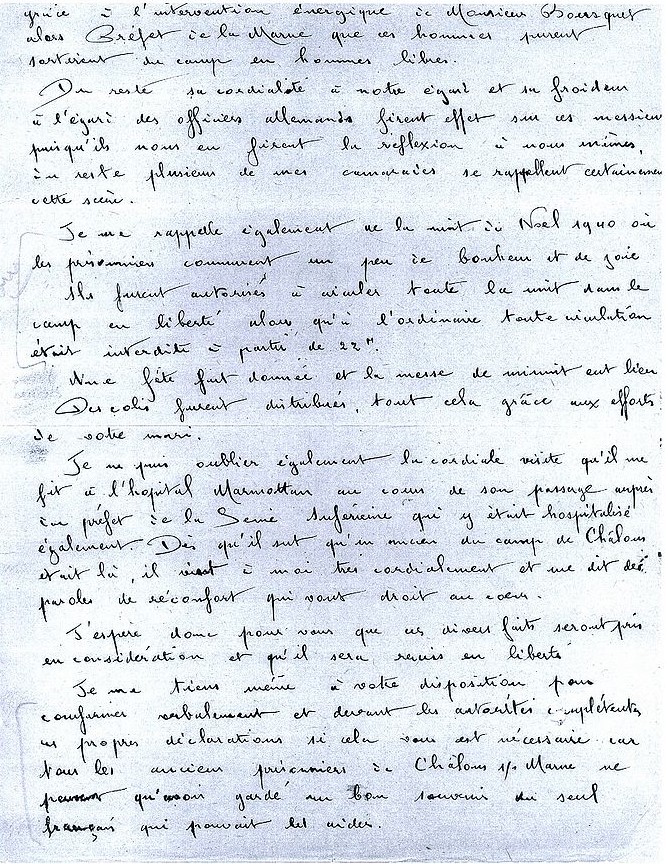 grâce à l'intervention énergique de Monsieur Bousquet
alors Préfet de la Marne que ces hommes purent
sortirent du camp en hommes libres.
Du reste sa cordialité à notre égard et sa froideur
à l'égard des officiers allemands firent effet sur ces messieurs
puisqu'ils nous en firent la reflexion à nous mêmes,
du reste plusieurs de mes camarades se rappellent certainement
cette scène.
Je me rappelle également de la nuit de Noel 1940 où
les prisonniers connurent un peu de bonheur et de joie
Ils furent autorisés à circuler toute la nuit dans le
camp en liberté alors qu'à l'ordinaire toute circulation
était interdite à partir de 22 H.
Une fête fut donnée et la messe de minuit eut lieu
Des colis furent distribués, tout cela grâce aux efforts
de votre mari.
Je ne puis oublier également la cordiale visite qu'il me
fit à l'hopital Marmottan au cours de son passage auprès
du préfet de la Seine Inférieure qui y était hospitalisé
également. Dès qu'il sut qu'un ancien du camp de Châlons
etait là, il vint à moi très cordialement et me dit des
paroles de réconfort qui vont droit au coeur.
J'espère donc pour vous que ces divers faits seront pris
en considération et qu'il sera remis en liberté
Je me tiens même à votre disposition pour
confirmer verbalement et devant les autorités compétentes
mes propres déclarations si cela vous est nécessaire car
tous les anciens prisonniers de Châlons s/ Marne ne
peuvent qu'avoir gardé un bon souvenir du seul
français qui pouvait les aider.